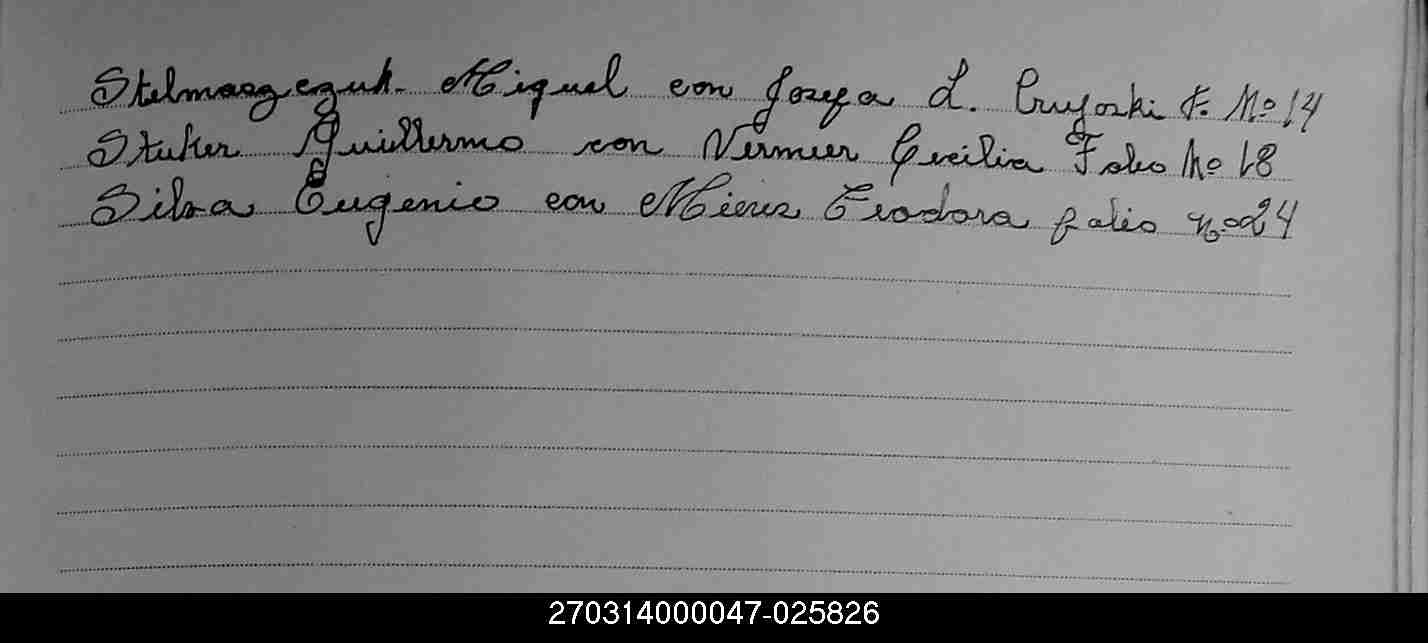 Stelmaszczuk Miguel con Josefa L. F. No 14
Stuker Guillermo con Vermeer Cecilia Folio No 18
Silva Eugenio con Mieres Teodora folio no 24
270314000047-025826